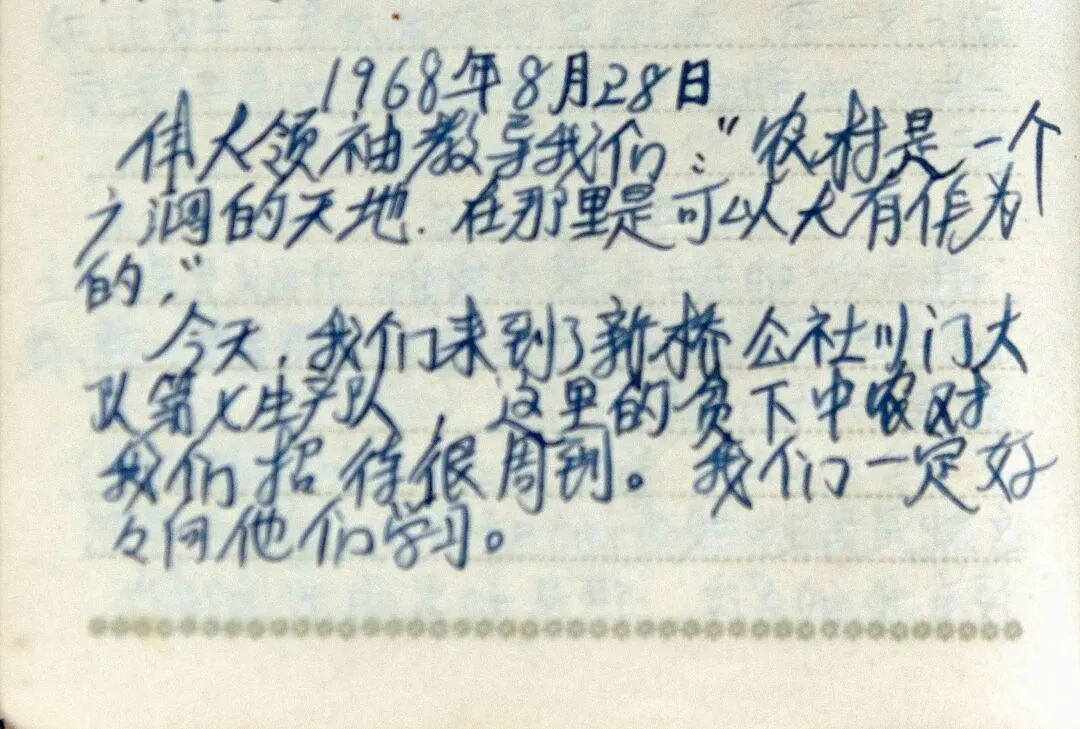 1968年8月28日
伟大领袖教导我们：“农村是一个
广阔的天地．在那里是可以大有作为
的，”
今天，我们来到了新桥公社川门大
队第七生产队，这里的贫下中农对
我们招待很周到。我们一定好
々向他们学习。